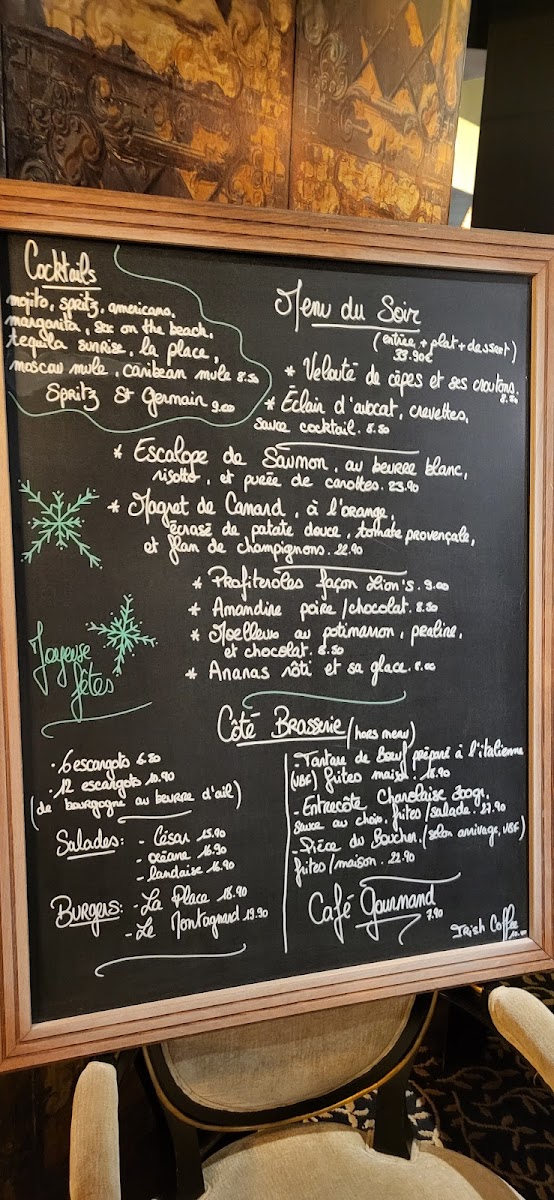 Cocktails
mojito, spritz, americano,
margarita, sex on the beach,
tequila sunrise, la place,
moscow mule, caribean mule 8.50
Spritz St Germain 9.00
Menu du Soir
(entrée + plat + dessert)
33.90€
* Velouté de cèpes et ses croutons.
8.50
* Éclair d'avocat, crevettes,
sauce cocktail. 8.50
* Escalope de Saumon, au beurre blanc,
risotto, et purée de carottes. 23.90
* Magret de Canard, à l'orange,
écrasé de patate douce, tomate provençale,
et flan de champignons. 22.90
* Profiteroles façon Lion's. 9.00
* Amandine poire/chocolat. 8.50
* Moelleux au potimarron, praline,
et chocolat. 8.50
* Ananas rôti et sa glace. 8.00
Joyeuse
fêtes
Côté Brasserie (hors menu)
- 6 escargots 6.80
- 12 escargots 10.90
(de bourgogne au beurre d'ail)
Salades: - César 15.90
- océane 16.90
- landaise 16.90
Burgers: - La Place 18.90
- Le Montagnard 19.90
- Tartare de Bœuf préparé à l'italienne
(VBF) frites maison. 18.90
- Entrecôte Charolaise 300gr,
sauce au choix, frites/salade. 27.90
- Pièce du Boucher. (selon arrivage, VBF)
frites/maison. 22.90
Café Gourmand
7.90
Irish Coffee
10.00